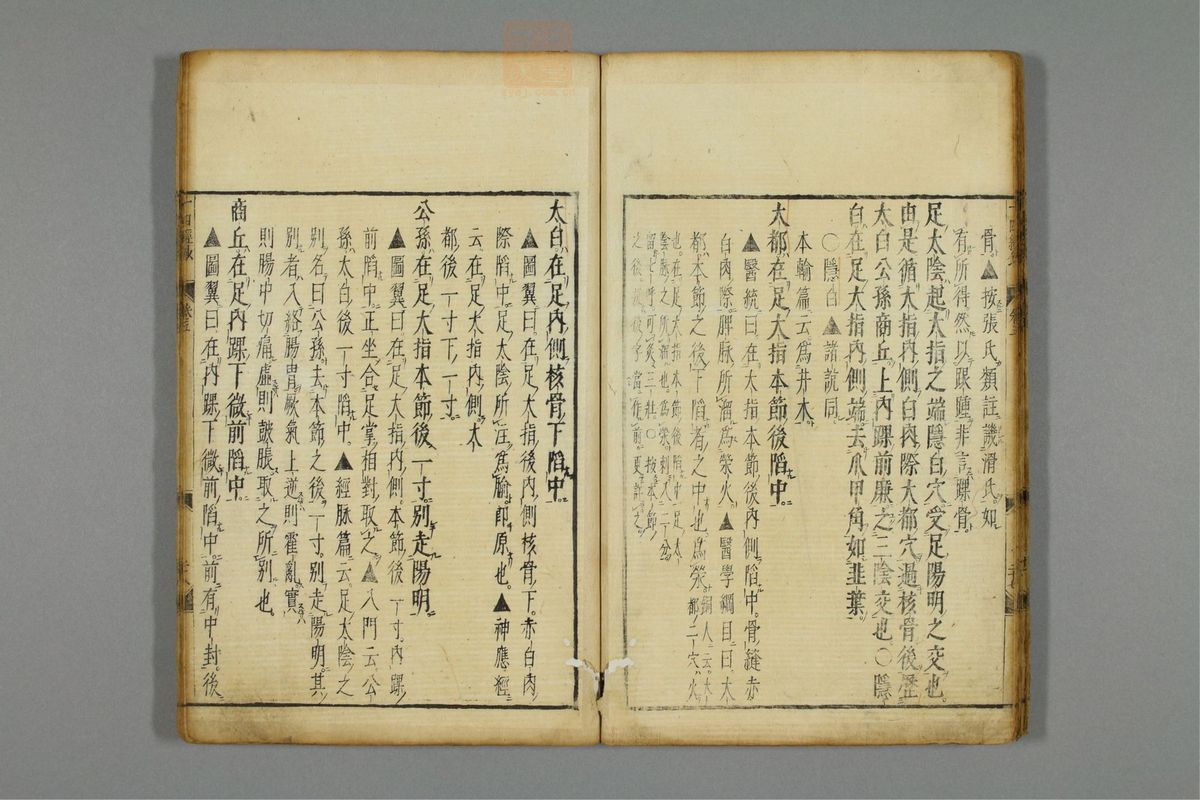 骨▲按張氏類註譏滑氏如
有所得然以踝腫非言踝骨
足太陰起大指之端隱白穴受足陽明之交也
由是循大指內側白肉際大都穴過核骨後歷
太白公孫商丘上內踝前廉之三陰交也○隱
白在足大指內側端去爪甲角如韭葉
○隱白▲諸說同
本輸篇云為井木
大都在足大指本節後陷中
▲醫統曰在大指本節後內側陷中骨縫赤
白肉際脾脈所溜為滎火▲醫學綱目曰太
都本節之後下陷者之中也為滎
銅人云大都二穴火
也在足大指本節後陷中足太
陰脉之所溜也為滎刺入三分
留七呼可灸三壯○按本節
之後
太白在足內側核骨下陷中
▲圖翼曰在足大指後內側核骨下赤白肉
際陷中足太陰所注為腧即原也▲神應經
云在足大指內側太
都後一寸下一寸
公孫在足大指本節後一寸別走陽明
▲圖翼曰在足大指內側本節後一寸內踝
前陷中正坐合足掌相對取之▲入門云公
孫太白後一寸陷中▲經脉篇云足太陰之
別名曰公孫去本節之後一寸別走陽明其
別者入絡腸胃厥氣上逆則霍亂實
則腸中切痛虛則皷脹取之所別也
商丘在足內踝下微前陷中
▲圖翼曰在內踝下微前陷中前有中封後